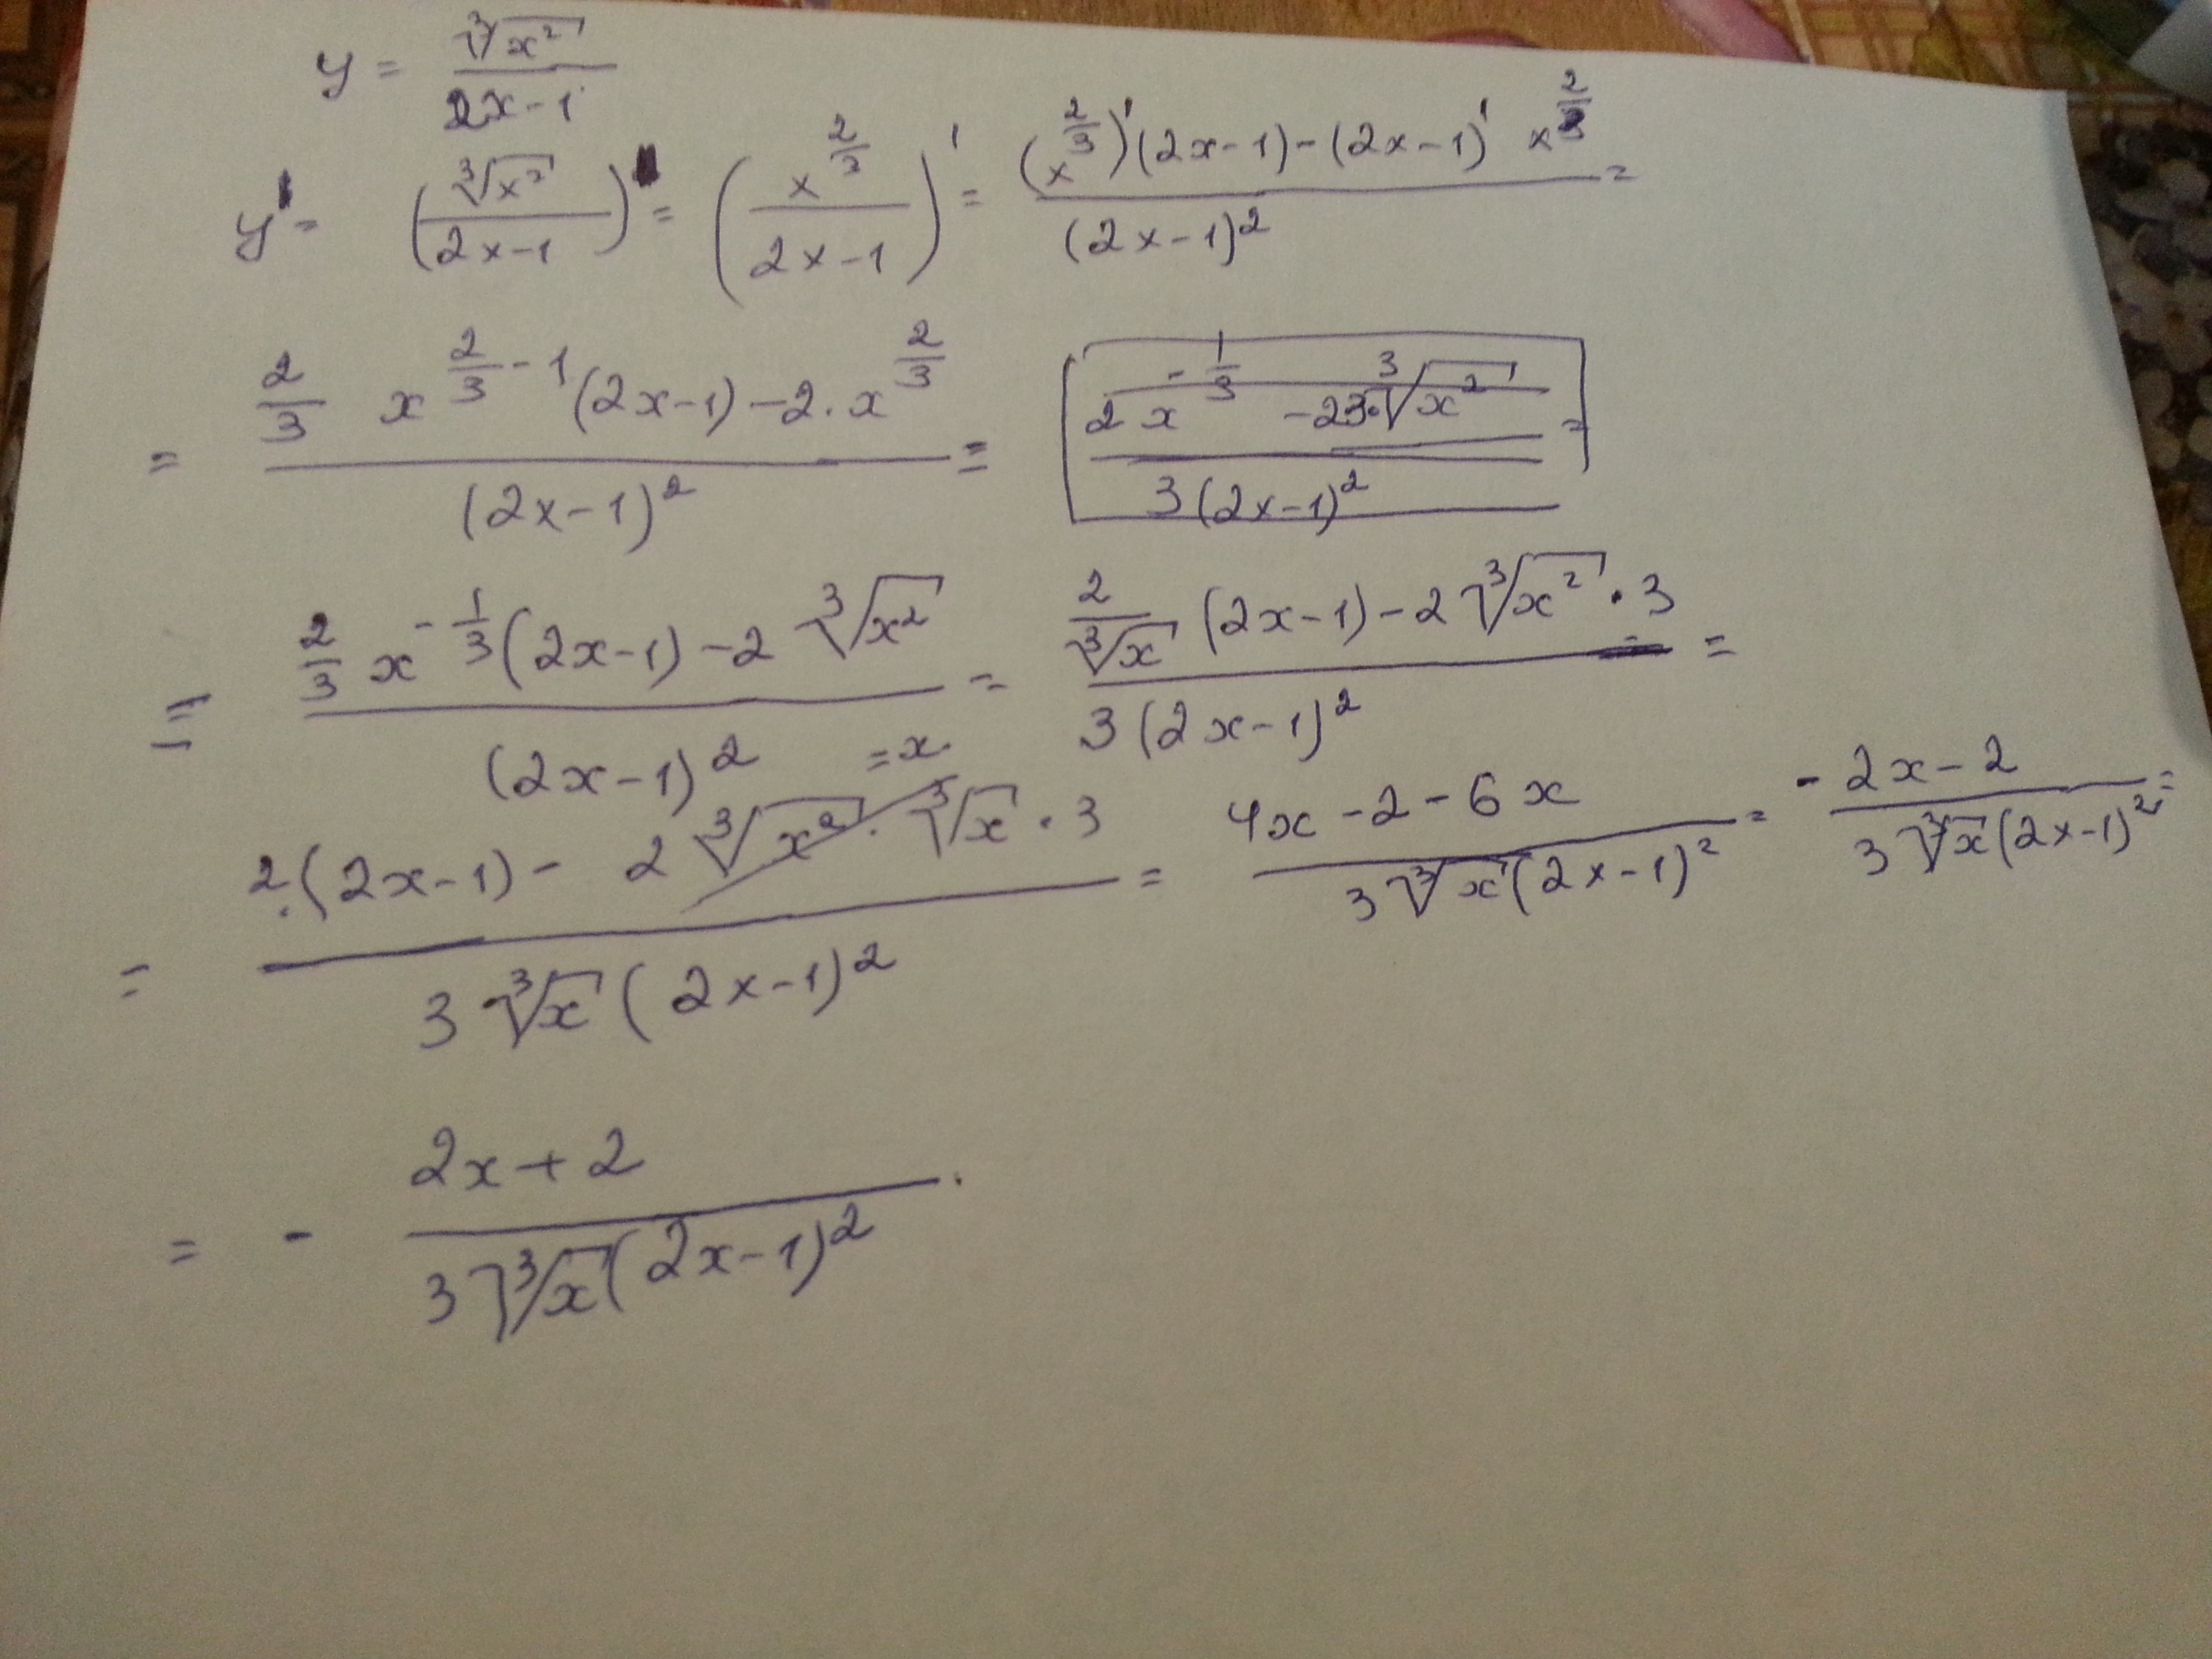 y = ∛(x²) / (2x-1)
y' = (∛(x²) / (2x-1))' = (x^(2/3) / (2x-1))' = ((x^(2/3))'(2x-1) - (2x-1)' x^(2/3)) / (2x-1)² =
= (2/3 x^(2/3 - 1) (2x-1) - 2·x^(2/3)) / (2x-1)² = [(2x^(-1/3) - 23·∛(x²)) / (3(2x-1)²) =]
= (2/3 x^(-1/3) (2x-1) - 2∛(x²)) / (2x-1)² = (2/∛x (2x-1) - 2∛(x²)·3) / (3(2x-1)²) =
=x.
= (2·(2x-1) - 2∛(x²)·∛x·3) / (3∛x(2x-1)²) = (4x-2-6x) / (3∛x(2x-1)²) = (-2x-2) / (3∛x(2x-1)²) =
= - (2x+2) / (3∛x(2x-1)²).